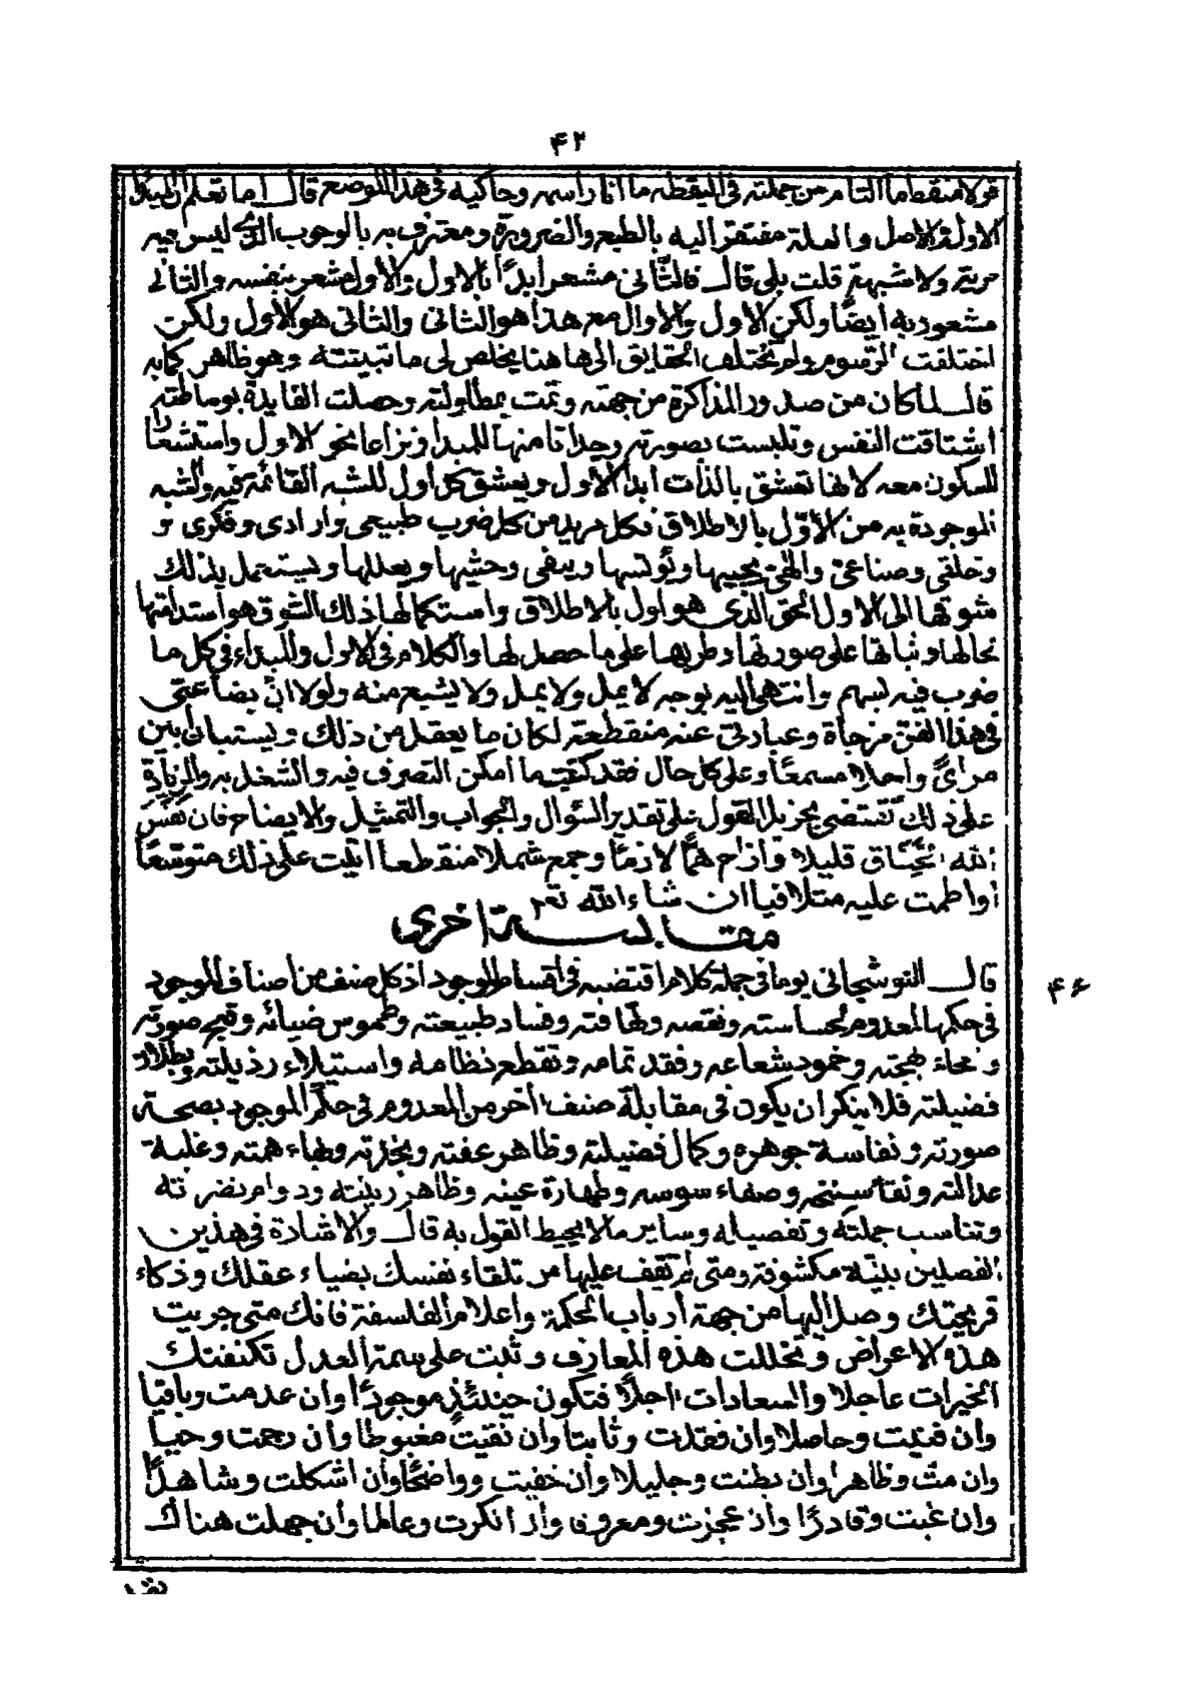 ۴۲
قولا منقطعا التام من جملته فى اليقظه ما انا راسمه وحاكيه فى هذا الموضع قال اما تعلم ان المبدأ
الاول والاصل والعلة مفتقر اليه بالطبع والضرورة ومعترف به بالوجوب الذى ليس فيه
مرية ولا شبهة قلت بلى قال فالثانى مشعر ابدًا بالاول والأول مشعر بنفسه والثانى
مشعور به ايضًا ولكن الاول والاوال مع هذا هو الثانى والثانى هو الأول ولكن
اختلفت الرسوم ولم تختلف الحقايق الى ها هنا يخلص لى ما تبيتته وهو ظاهر كما به
قال لما كان من صدور المذاكرة من جهته وتمت بمطاولته وحصلت الفايدة بوساطته
اشتاقت النفس وتلبست بصورته وجدانا منها للمبدا ونزاعا نحو الاول واستشعارا
للسكون معه لانها تعشق بالذات ابدا الأول ويعشق كل اول للشبه القائمة فيه والشبه
الموجودة به من الأوّل بالاطلاق فكل مريد من كل ضرب طبيعى وارادى وفكرى و
وخلقى وصناعى والهى يحييها ويؤنسها وينفى وحشيها ويعللها ويستعمل بذلك
شوقها الى الاول الحق الذى هو اول بالاطلاق واستكمالها ذلك الشوق هو استدامتها
لحالها وثباتها على صورتها وطربها على ما حصل لها والكلام فى الاول والمبداء فى كل ما
ضرب فيه بسهم وانتهى اليه بوجه لا يمل ولا يمل ولا يشبع منه ولولا انّ بضاعتى
فى هذا الفن مزجاة وعبارتى عنه منقطعة لكان ما يعقل من ذلك ويستبان بين
مرأىً واحلا مسمعًا وعلى كل حال فقد كتبت ما امكن التصرف فيه والشغل به والزيادة
على ذلك تقتضى تجزيل القول على تقدير السؤال والجواب والتمثيل والايضاح فان نفّس
الله الخناق قليلا وازاح همًّا لازمًا وجمع شملا منقطعا اتيت على ذلك متوسّعًا
او اطمت عليه متلافيا ان شاء الله تعم
مقابسة اخرى
قال النوشجانى يوما فى جملة كلام اقتضبه فى اقساط الموجود اذ كل صنف من اصناف الموجود
۴۶
فى حكم المعدوم لخساسته ونقصه وتهافته وفساد طبيعته وطموس ضيائه وقبح صورته
و نحاء بهجته وخمود شعاعه وفقد تمامه وتقطع نظامه واستيلاء رذيلته وبطلان
فضيلته فلا ينكر ان يكون فى مقابلة صنف اخر من المعدوم فى حكم الموجود بصحة
صورته ونفاسة جوهره وكمال فضيلته وظاهر عفته ونجدته وبهاء همته وغلبة
عدالته ونقا سنخه وصفاء سوسه وطهارة عينه وظاهر زينته ودوام نضرته
وتناسب جملته وتفصيله وساير ما لا يحيط القول به قال والاشارة فى هذين
الفصلين بليغة مكشوفة ومتى لم تقف عليها من تلقاء نفسك بضياء عقلك وذكاء
قريحتك وصل اليها من جهة ارباب الحكمة واعلام الفلسفة فانك متى جريت
هذه الاعراض وتخللت هذه المعارف وثبت على سمة العدل تكنفتك
الخيرات عاجلا والسعادات اجلًا فتكون حينئذ موجودًا وان عدمت وباقيا
وان فنيت وحاصلا وان فقدت وثابتا وان نفيت مغبوطا وان رحمت وحيا
وان مت وظاهرا وان بطنت وجليلا وان خفيت وواضحًا وان اشكلت وشاهدًا
وان غبت وقادرًا وان عجزت ومعروفا وان انكرت وعالما وان جهلت هناك